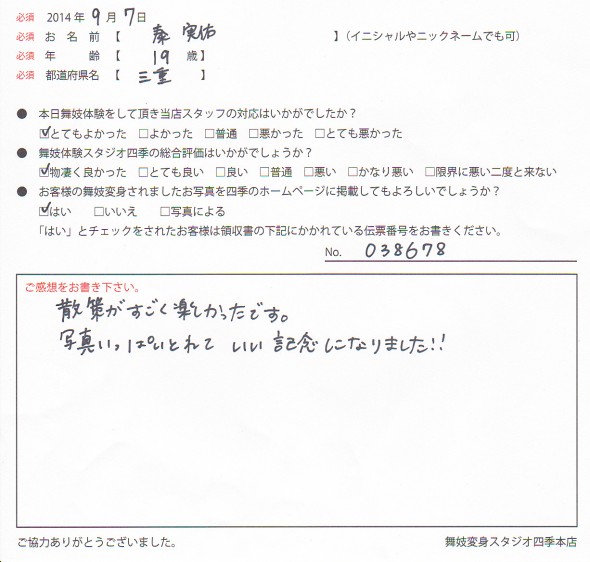 必須 2014 年 9 月 7 日
必須 お 名 前 【 秦 実佑 】(イニシャルやニックネームでも可)
必須 年 齢 【 19 歳】
必須 都道府県名 【 三重 】
● 本日舞妓体験をして頂き当店スタッフの対応はいかがでしたか？
☑とてもよかった □よかった □普通 □悪かった □とても悪かった
● 舞妓体験スタジオ四季の総合評価はいかがでしょうか？
☑物凄く良かった □とても良い □良い □普通 □悪い □かなり悪い □限界に悪い二度と来ない
● お客様の舞妓変身されましたお写真を四季のホームページに掲載してもよろしいでしょうか？
☑はい □いいえ □写真による
「はい」とチェックをされたお客様は領収書の下記にかかれている伝票番号をお書きください。
No. 038678
ご感想をお書き下さい。
散策がすごく楽しかったです。
写真いっぱいとれて いい 記念になりました!!
ご協力ありがとうございました。 舞妓変身スタジオ四季本店